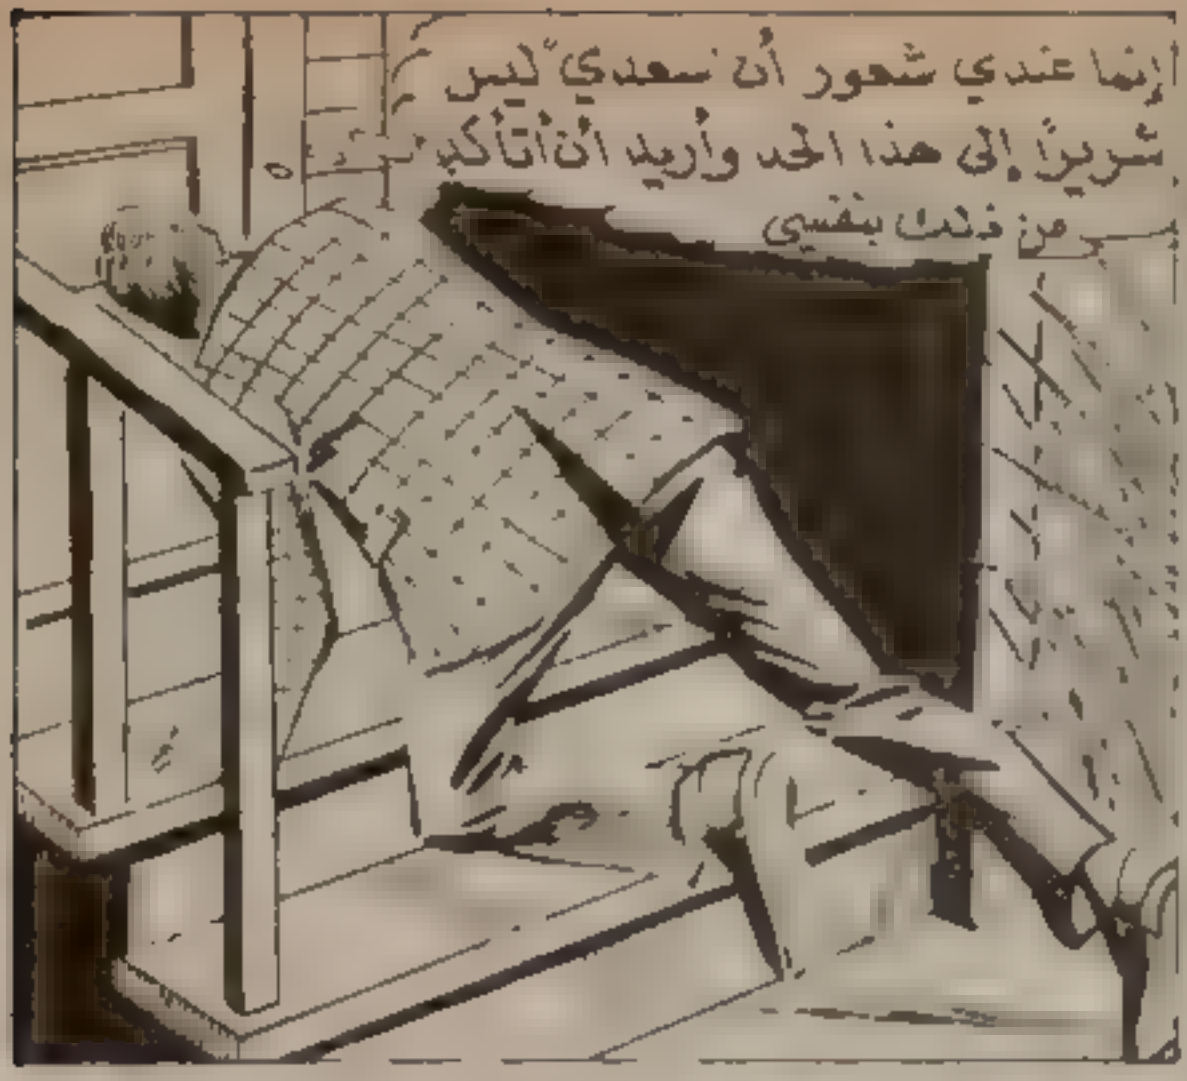 إنما عندي شعور أن سعدي ليس
شريرًا إلى هذا الحد وأريد أن أتأكد
من ذلك بنفسي